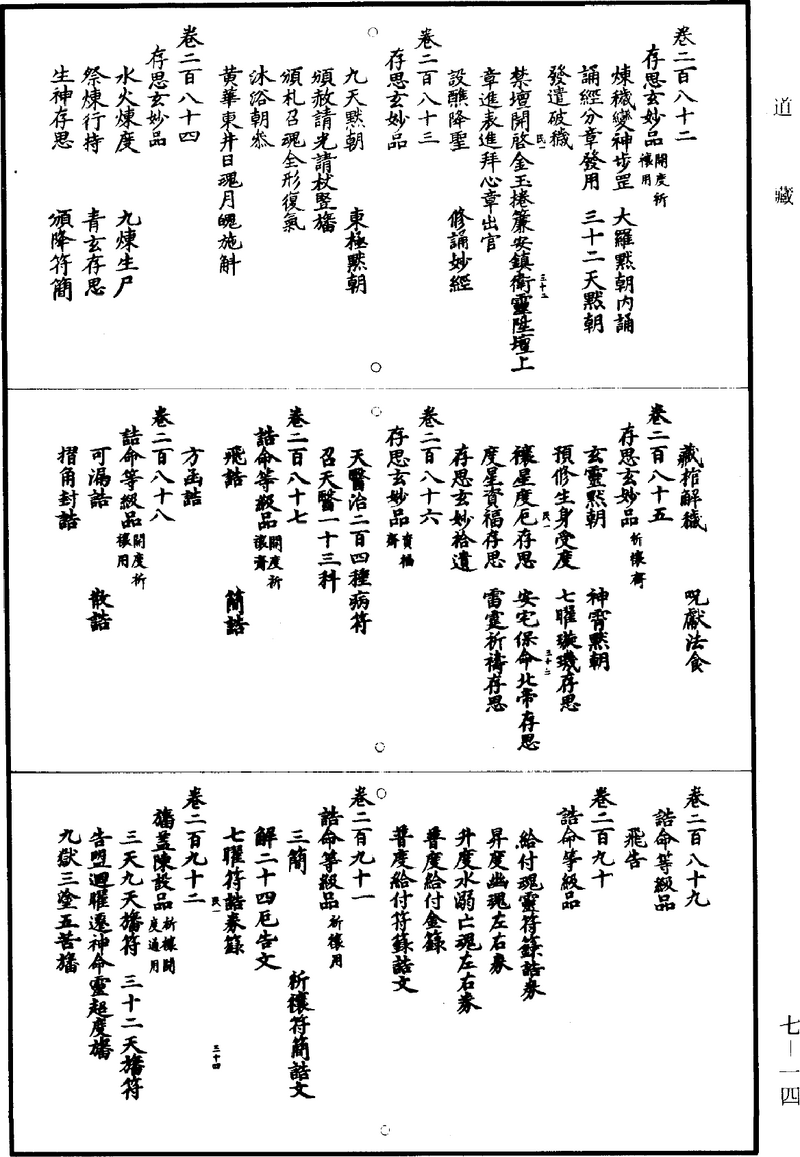 道藏
卷二百八十二
存思玄妙品開度祈禳用
煉穢變神步罡　大羅黙朝內誦
誦經分章發用　三十二天黙朝
發遣破穢
禁壇開啓金玉捲簾安鎮衛靈陞壇上
章進表進拜心章出官
設醮降聖　修誦妙經
卷二百八十三
存思玄妙品
九天黙朝　東極黙朝
頒赦請光請杖竪旛
頒札召魂全形復氣
沐浴朝叅
黃華東井日魂月魄施斛
卷二百八十四
存思玄妙品
水火煉度　九煉生尸
祭煉行持　青玄存思
生神存思　頒降符簡
民一
三十二
藏棺解穢　呪獻法食
卷二百八十五
存思玄妙品祈禳齋
玄靈黙朝　神霄黙朝
預修生身受度　七曜璇璣存思
禳星度厄存思　安宅保命北帝存思
度星資福存思　雷霆祈禱存思
存思玄妙拾遺
卷二百八十六
存思玄妙品資福齋
天醫治二百四種病符
召天醫一十三科
卷二百八十七
誥命等級品開度祈禳齋
飛誥　簡誥
方函誥
卷二百八十八
誥命等級品開度祈禳用
可漏誥　散誥
摺角封誥
民一
三十三
卷二百八十九
誥命等級品
飛告
卷二百九十
誥命等級品
給付魂靈符籙誥券
昇度幽魂左右券
升度水溺亡魂左右券
普度給付金籙
普度給付符籙誥文
卷二百九十一
誥命等級品祈禳用
三簡　祈禳符簡誥文
解二十四厄告文
七曜符誥券籙
卷二百九十二
旛蓋陳設品祈禳開度通用
三天九天旛符　三十二天旛符
告盟迴曜遷神命靈超度旛
九獄三塗五苦旛
民一
三十四
七—一四